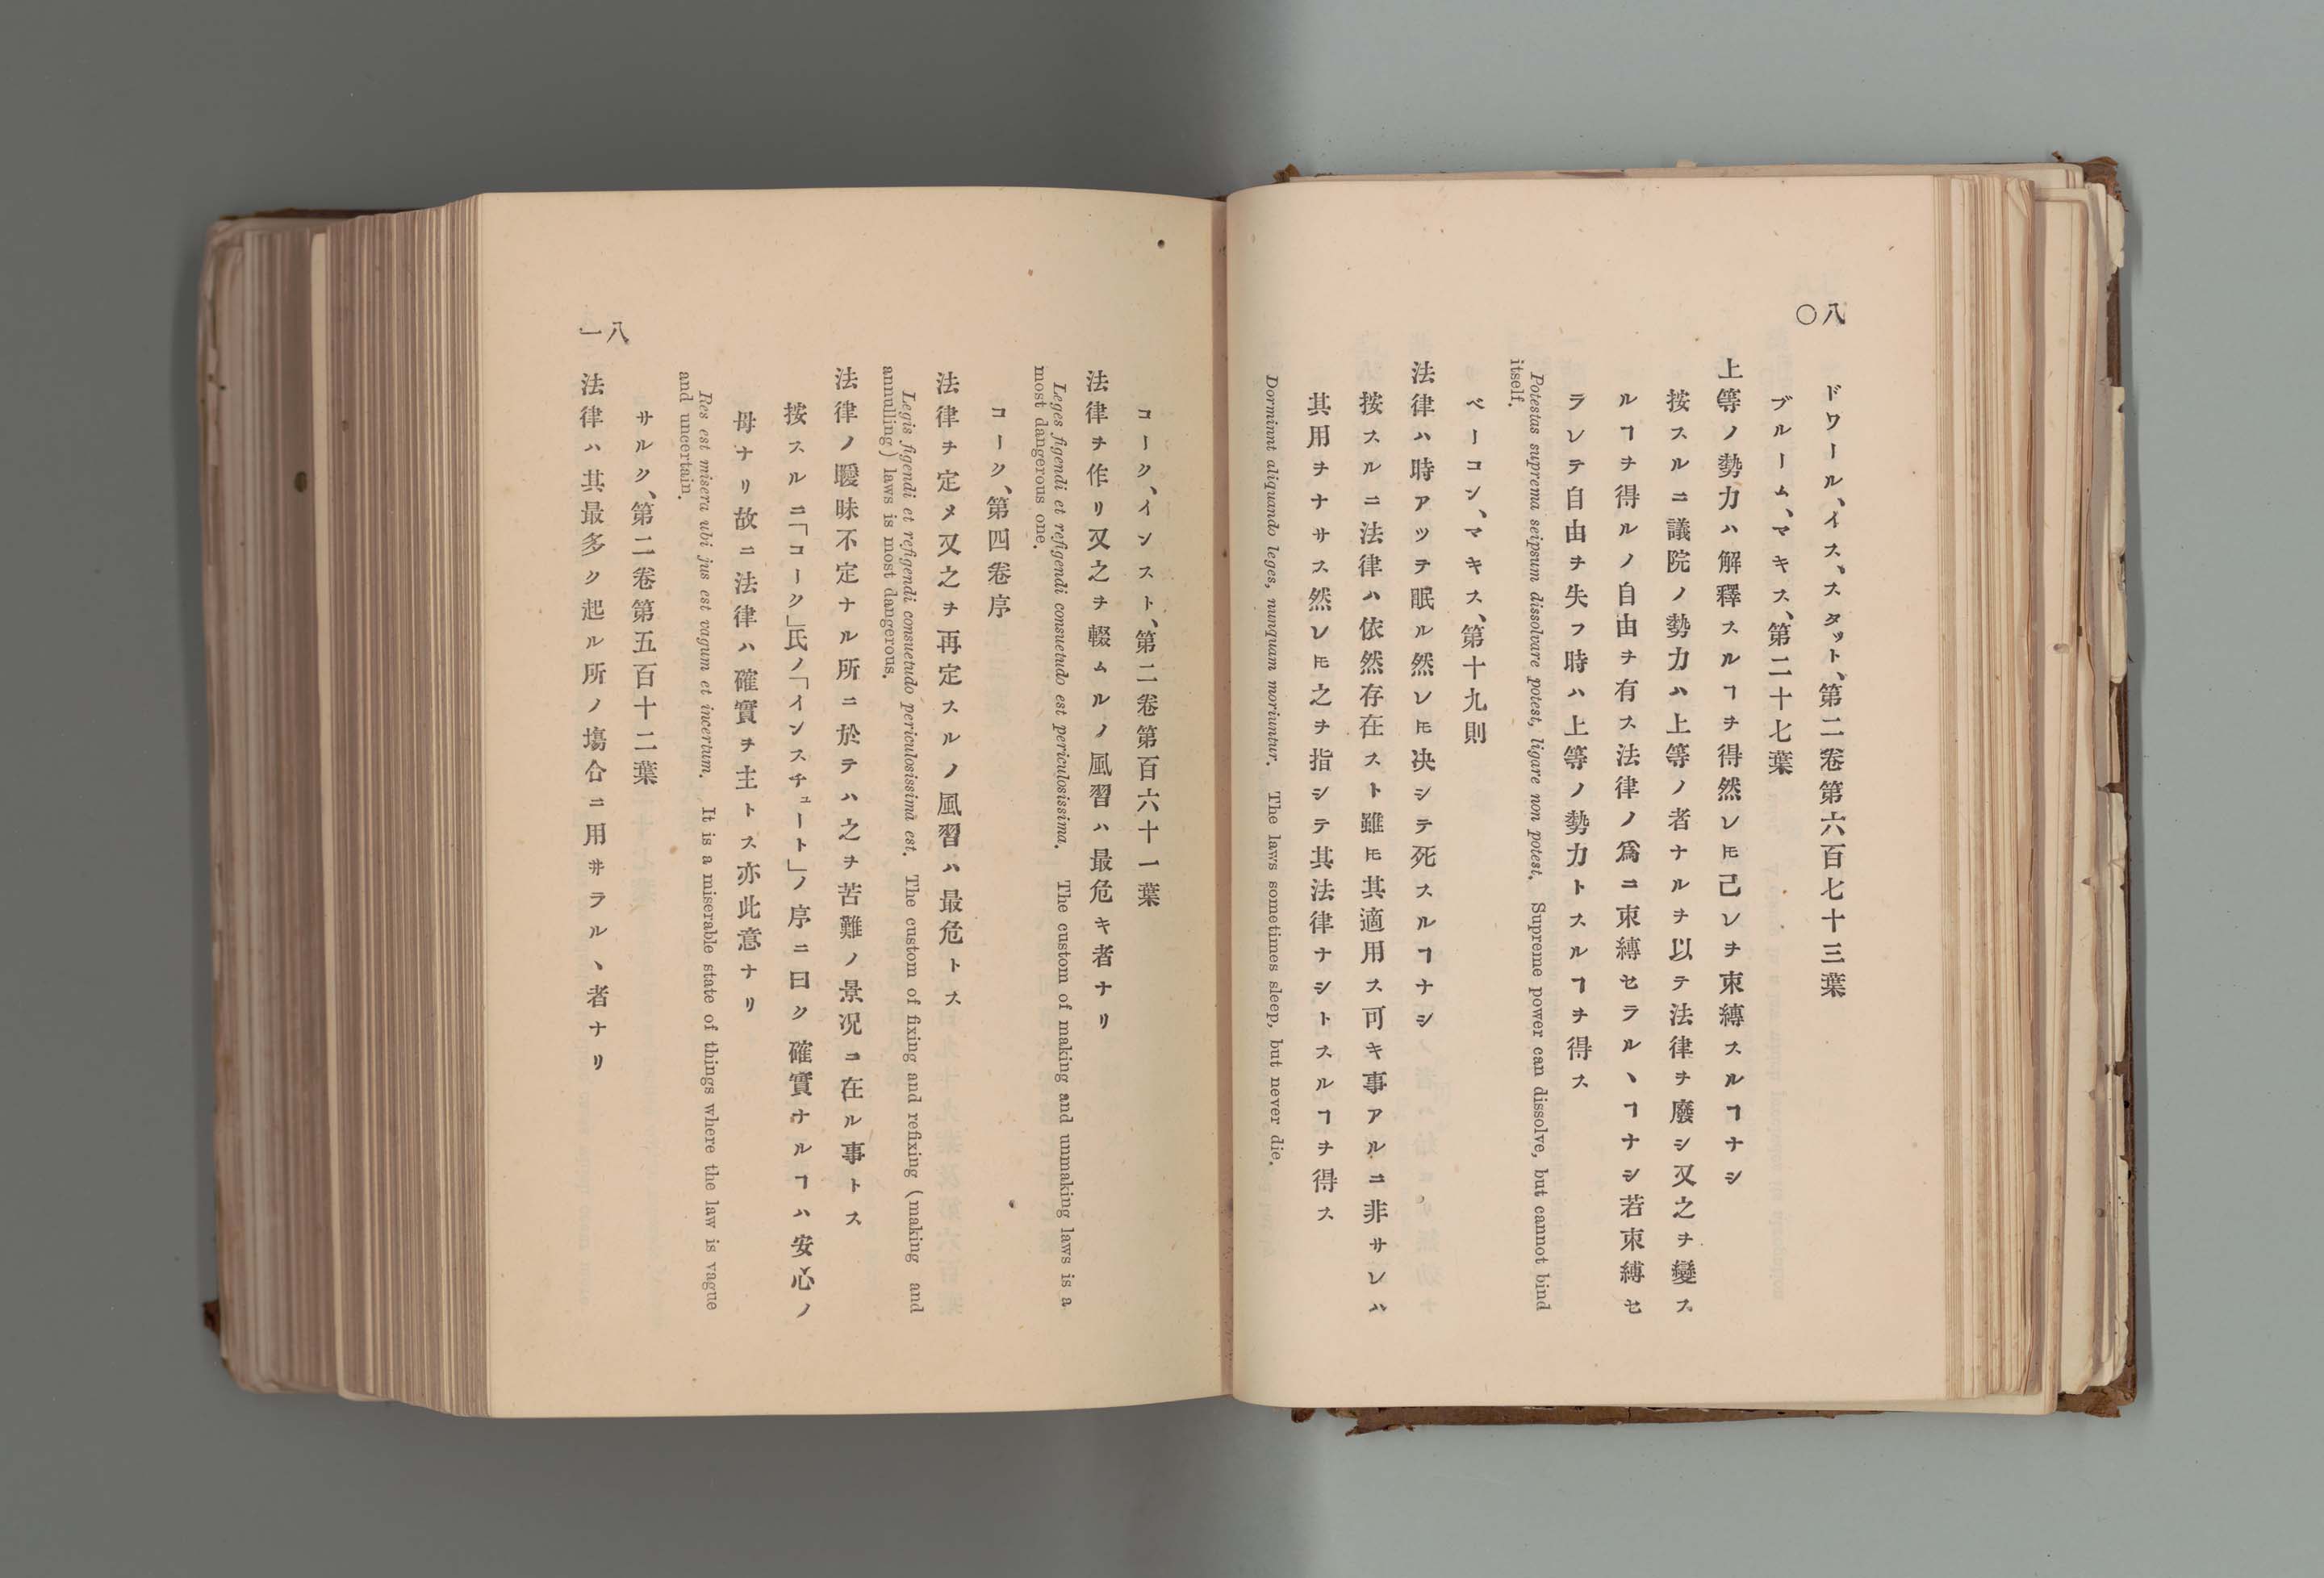 八〇
ドワール、イス、スタット、第二卷第六百七十三葉
ブルーム、マキス、第二十七葉
上等ノ勢力ハ解釋スルヿヲ得然レ𪜈己レヲ束縛スルヿナシ
按スルニ議院ノ勢力ハ上等ノ者ナルヲ以テ法律ヲ廢シ又之ヲ變ス
ルヿヲ得ルノ自由ヲ有ス法律ノ爲ニ束縛セラルヽヿナシ若束縛セ
ラレテ自由ヲ失フ時ハ上等ノ勢力トスルヿヲ得ス
Potestas suprema seipsum dissolvare potest, ligare non potest. Supreme power can dissolve, but cannot bind
itself.
ベーコン、マキス、第十九則
法律ハ時アツテ眠ル然レ𪜈决シテ死スルヿナシ
按スルニ法律ハ依然存在スト雖𪜈其適用ス可キ事アルニ非サレハ
其用ヲナサス然レ𪜈之ヲ指シテ其法律ナシトスルヿヲ得ス
Dorminnt aliquando leges, nunquam moriuntur. The laws sometimes sleep, but never die.
コーク、インスト、第二卷第百六十一葉
法律ヲ作リ又之ヲ輟ムルノ風習ハ最危キ者ナリ
Leges figendi et refigendi consuetudo est periculosissima. The custom of making and unmaking laws is a
most dangerous one.
コーク、第四卷序
法律ヲ定メ又之ヲ再定スルノ風習ハ最危トス
Legis figendi et refigendi consuetudo periculosissima est. The custom of fixing and refixing (making and
annulling) laws is most dangerous.
法律ノ曖昧不定ナル所ニ於テハ之ヲ苦難ノ景况コ在ル事トス
按スルニ「コーク」氏ノ「インスチュート」ノ序ニ曰ク確實ナルヿハ安心ノ
母ナリ故ニ法律ハ確實ヲ主トス亦此意ナリ
Res est misera ubi jus est vagum et incertum. It is a miserable state of things where the law is vague
and uncertain.
サルク、第二卷第五百十二葉
法律ハ其最多ク起ル所ノ塲合ニ用井ラルヽ者ナリ
八一